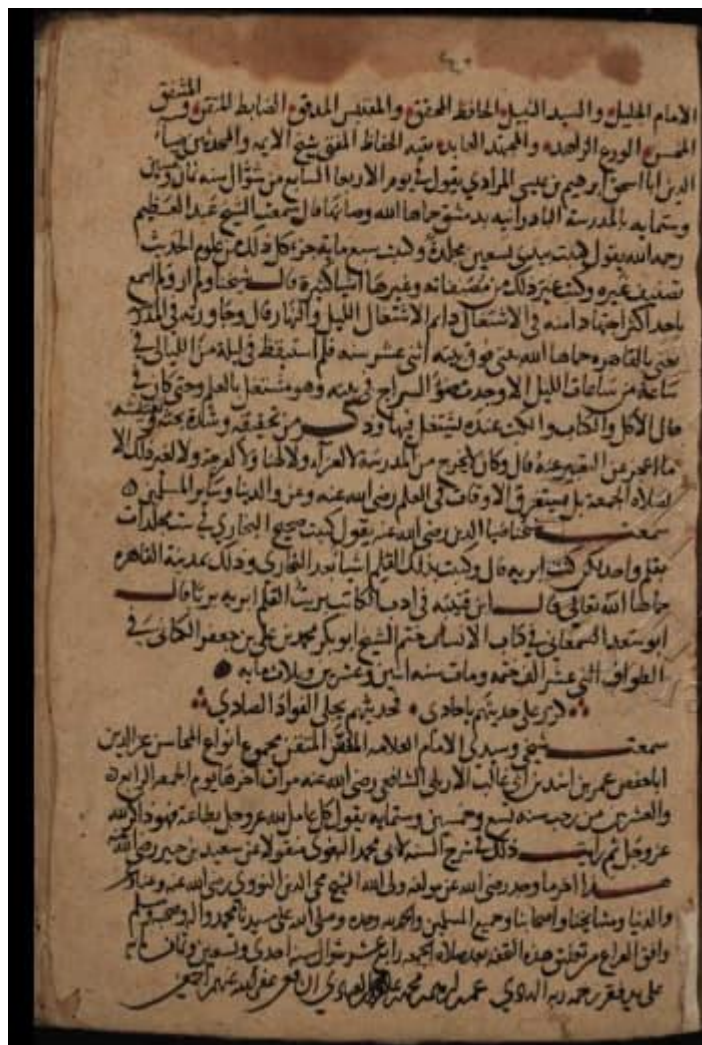 الامام الجليل والسيد النبيل الحافظ المحقق والمفتش المدقق الضابط المتقن والمشفق
المحسن الورع الزاهد والمجتهد العابد بقية الحفاظ المفتي شيخ الايمة والمحدثين ضياء
الدين ابا اسحق ابرهيم بن عيسى المرادي يقول في يوم الاربعا السابع من شوال سنه ثمان وخمسين
وستمايه بالمدرسة البادرائيه بدمشق حماها الله وصانها قال سمعت الشيخ عبد العظيم
رحمه الله يقول كتبت بيدي تسعين مجلدة وكتبت سبع ماية جزء كل ذلك من علوم الحديث
تصنيف غيره وكتب غير ذلك من مصنفاته وغيرها اشيا كثيرة قال شيخنا ولم ار ولم اسمع
باحد اكثر اجتهادا منه في الاشتغال دايم الاشتغال الليل والنهار قال وجاورته في المدرسة
يعني بالقاهرة حماها الله بيتي فوق بيته اثنى عشر سنه فلم استيقظ في ليلة من الليالي في
ساعة من ساعات الليل الا وجدت ضوء السراج في بيته وهو مشتغل بالعلم وحتى كان في
حال الاكل والكتاب والكتب عنده ليشتغل فيها وذكر من تحقيقه وشدة بحثه وتفتيشه
ما اعجز عن التعبير عنه قال وكان لا يخرج من المدرسة لا لعزاء ولا لهنا ولا لفرجة ولا لغير ذلك الا
لصلاة الجمعة بل يستغرق الاوقات في العلم رضي الله عنه وعن والدينا وساير المسلمين
سمعت شيخنا ضيا الدين رضي الله عنه يقول كتبت صحيح البخاري في ست مجلدات
بقلم واحد كنت ابريه قال وكتبت بذلك القلم اشيا بعد البخاري وذلك بمدينة القاهره
حماها الله تعالى قال ابن قتيبه في ادب الكاتب بريت القلم ابريه بريا قال
ابو سعد السمعاني في كتاب الانساب ختم الشيخ ابو بكر محمد بن علي بن جعفر الكتاني في
الطواف اثني عشر الف ختمه ومات سنه اثنين وعشرين وثلاث مايه
كرر علي حديثهم يا حادي فحديثهم يجلي الفواد الصادي
سمعت شيخي وسيدي الامام العلامه المحقق المتقن مجموع انواع المحاسن عز الدين
ابا حفص عمر بن اسد بن ابي غالب الاربلي الشافعي رضي الله عنه مرات اخرها يوم الجمعه الرابع
والعشرين من رجب سنه تسع وخمسين وستمايه يقول كل عامل لله عز وجل بطاعة فهو ذاكر لله
عز وجل ثم رايت ذلك في شرح السنه لابي محمد البغوي منقولا عن سعيد بن جبير رضي الله عنه
هذا اخر ما وجد رضي الله عن مولفه ولي الله الشيخ محي الدين النووي رضي الله عنه وعنا وعن
والدينا ومشايخنا واصحابنا وجميع المسلمين والحمد لله وحده وصلى الله على سيدنا محمد واله وصحبه وسلم
وافق الفراغ من تعليق هذه النسخه بعد صلاه الجمعه رابع عشر شوال سنه احدى وتسعين وثمان مايه
على يد فقير رحمه ربه الهادي محمد غفر الله عنهم اجمعين